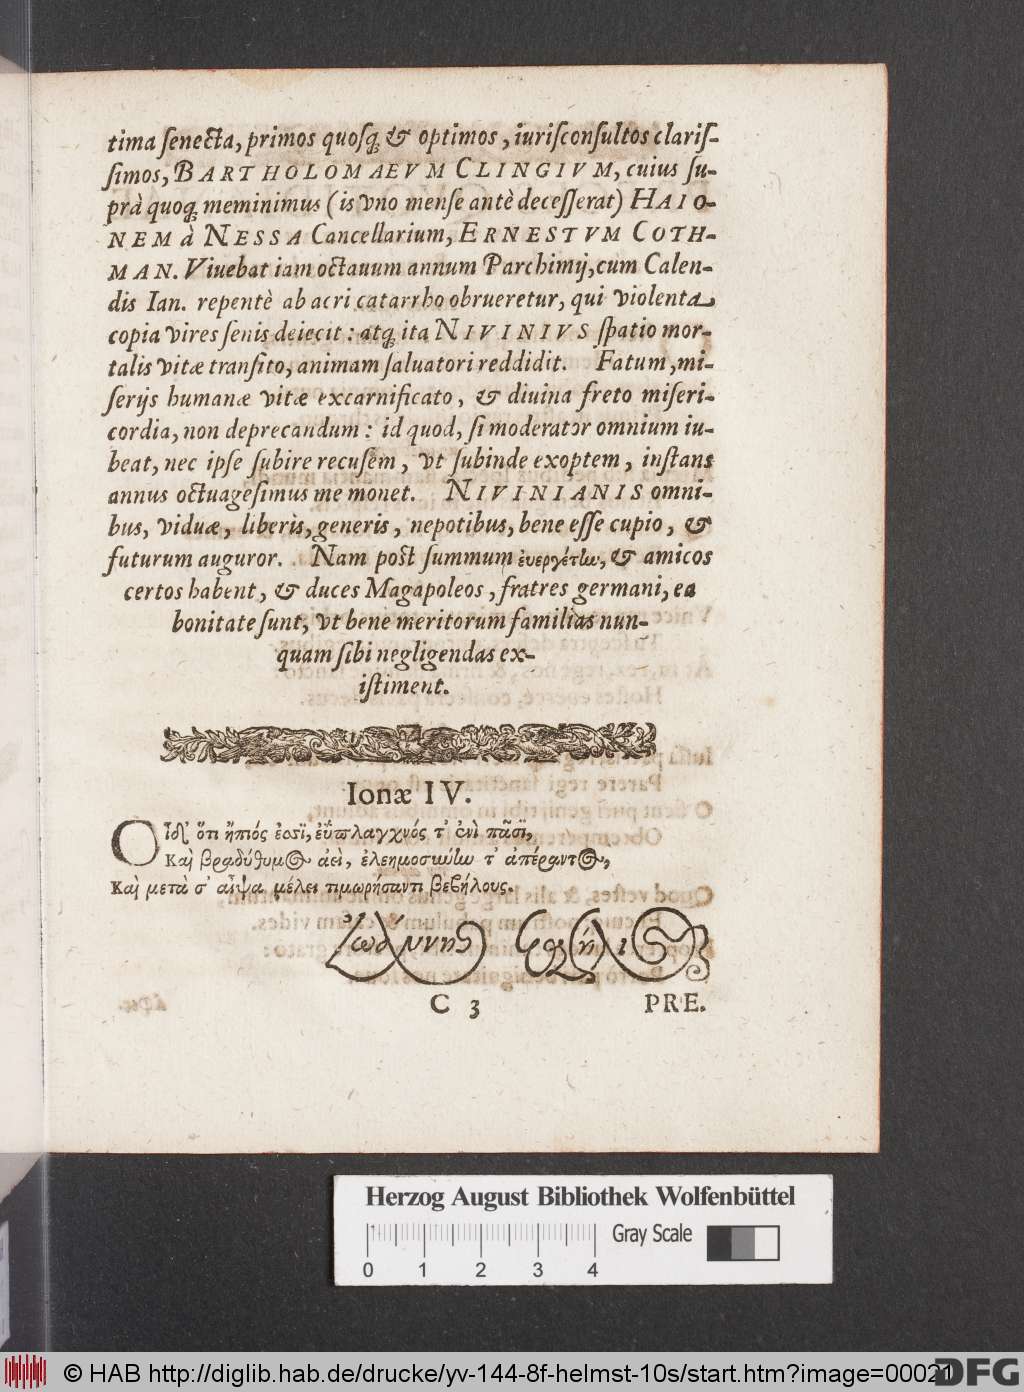 tima ſenecta, primos quoſq́; & optimos, iuriſconſultos clariſ-
ſimos, BARTHOLOMAEVM CLINGIVM, cuius ſu-
prà quoq; meminimus (is vno menſe antè deceſſerat) HAIO-
NEM à NESSA Cancellarium, ERNESTVM COTH-
MAN. Viuebat iam octauum annum Parchimij, cum Calen-
dis Ian. repentè ab acri catarrho obrueretur, qui violenta
copia vires ſenis deiecit: atq́; ita NIVINIVS ſpatio mor-
talis vitæ tranſito, animam ſaluatori reddidit. Fatum, mi-
ſerijs humanæ vitæ excarnificato, & diuina freto miſeri-
cordia, non deprecandum: id quod, ſi moderator omnium iu-
beat, nec ipſe ſubire recuſem, vt ſubinde exoptem, inſtans
annus octuageſimus me monet. NIVINIANIS omni-
bus, viduæ, liberis, generis, nepotibus, bene eſſe cupio, &
futurum auguror. Nam poſt ſummum ἐυεργέτην, & amicos
certos habent, & duces Magapoleos, fratres germani, ea
bonitate ſunt, vt bene meritorum familias nun-
quam ſibi negligendas ex-
iſtiment.
Ionæ IV.
Οἶδ' ὅτι ἤπιός ἐσσὶ, ἐΰσπλαγχνός τ' ἐνὶ πᾶσϊ,
Καὶ βραδύθυμος ἀεὶ, ἐλεημοσύνην τ' ἀπέραντος,
Καὶ μετὰ σ' αἶψα μέλει τιμωρήσαντι βεβήλους.
Ἰωάννης
C 3 PRE.
Herzog August Bibliothek Wolfenbüttel
Gray Scale
0 1 2 3 4
© HAB http://diglib.hab.de/drucke/yv-144-8f-helmst-10s/start.htm?image=00021
DFG